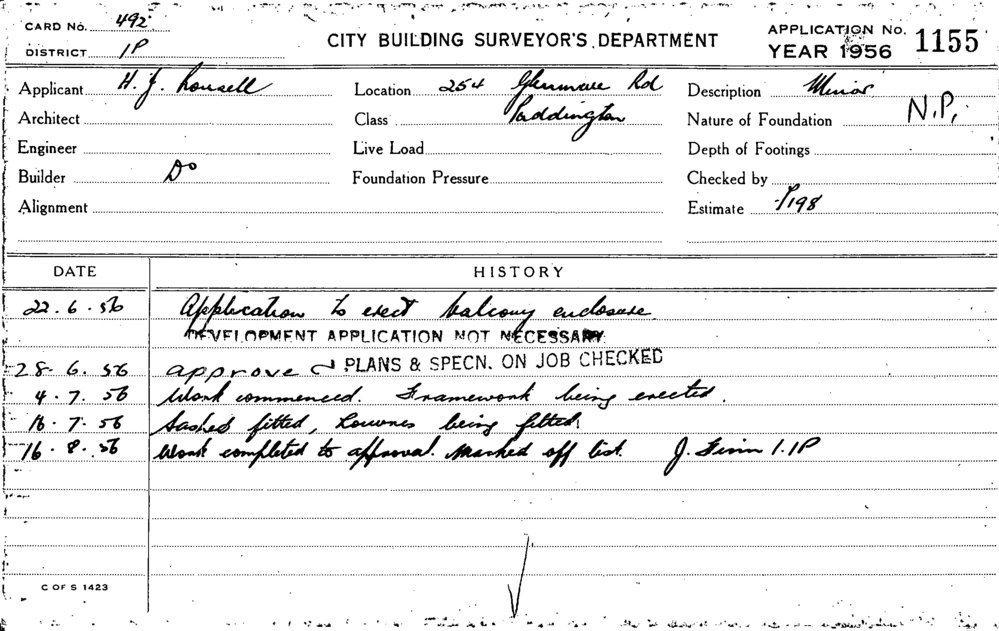 CARD No. 492
DISTRICT 1P
CITY BUILDING SURVEYOR'S DEPARTMENT
APPLICATION No. 1155
YEAR 1956
Applicant H. J. Location 254 Glenmore Rd Description Minor
Architect Class Paddington Nature of Foundation N.P.
Engineer Live Load Depth of Footings
Builder Do Foundation Pressure Checked by
Alignment Estimate £198
DATE HISTORY
22.6.56 Application to erect balcony enclosure
DEVELOPMENT APPLICATION NOT NECESSARY
28.6.56 approve PLANS & SPECN. ON JOB CHECKED
4.7.56 Work commenced. Framework being erected.
16.7.56 Sashes fitted, Louvres being fitted.
16.8.56 Work completed to approval. Marked off list. J. 1P
C OF S 1423